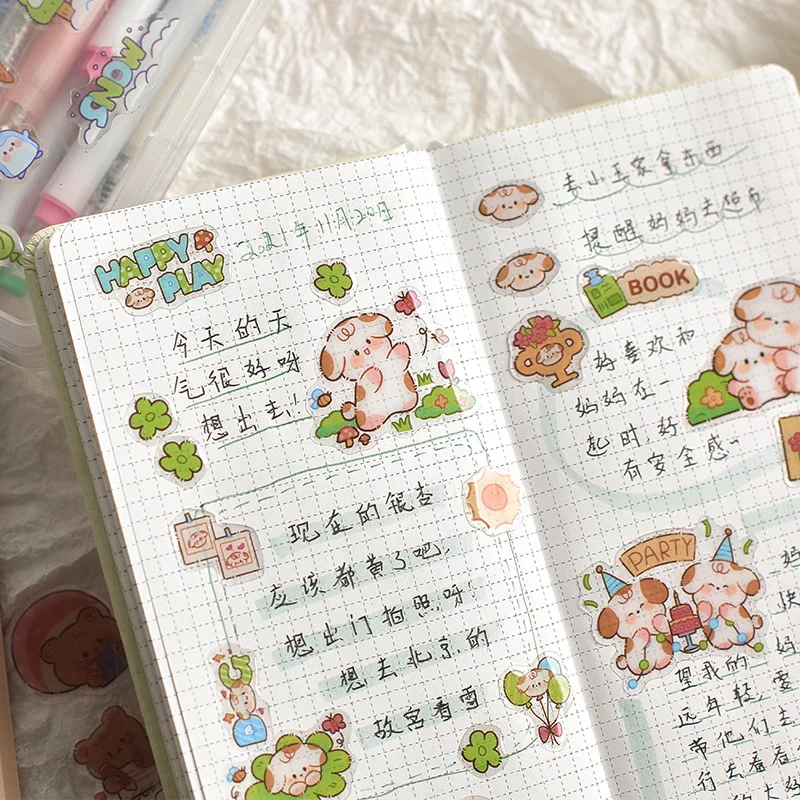 SNOW
HAPPY
PLAY
2021年11月20日
今天的天
气很好呀
想出去!
现在的银杏
应该都黄了吧,
想出门拍照,呀!
想去北京,的
故宫看雪
去小王家拿东西
提醒妈妈去超市
BOOK
好喜欢和
妈妈在一
起时,好
有安全感~
PARTY
妈
快
望我的 妈
远年轻,要
带他们去
行去看看